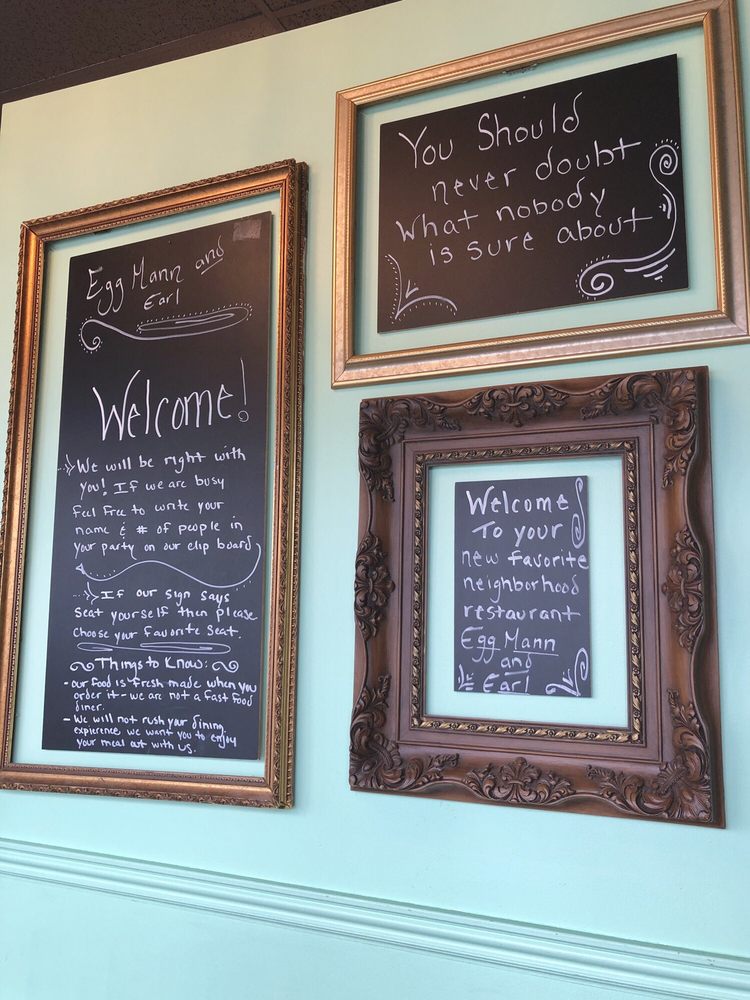 Egg Mann and
Earl
Welcome!
We will be right with
you! If we are busy
Feel Free to write your
name & # of people in
your party on our clip board
If our sign says
Seat yourself then please
Choose your favorite Seat.
Things to Know:
- our food is fresh made when you
order it - we are not a fast food
diner.
- We will not rush your dining
experience we want you to enjoy
your meal out with us.
You Should
never doubt
What nobody
is sure about
Welcome
To your
new favorite
neighborhood
restaurant
Egg Mann
and
Earl